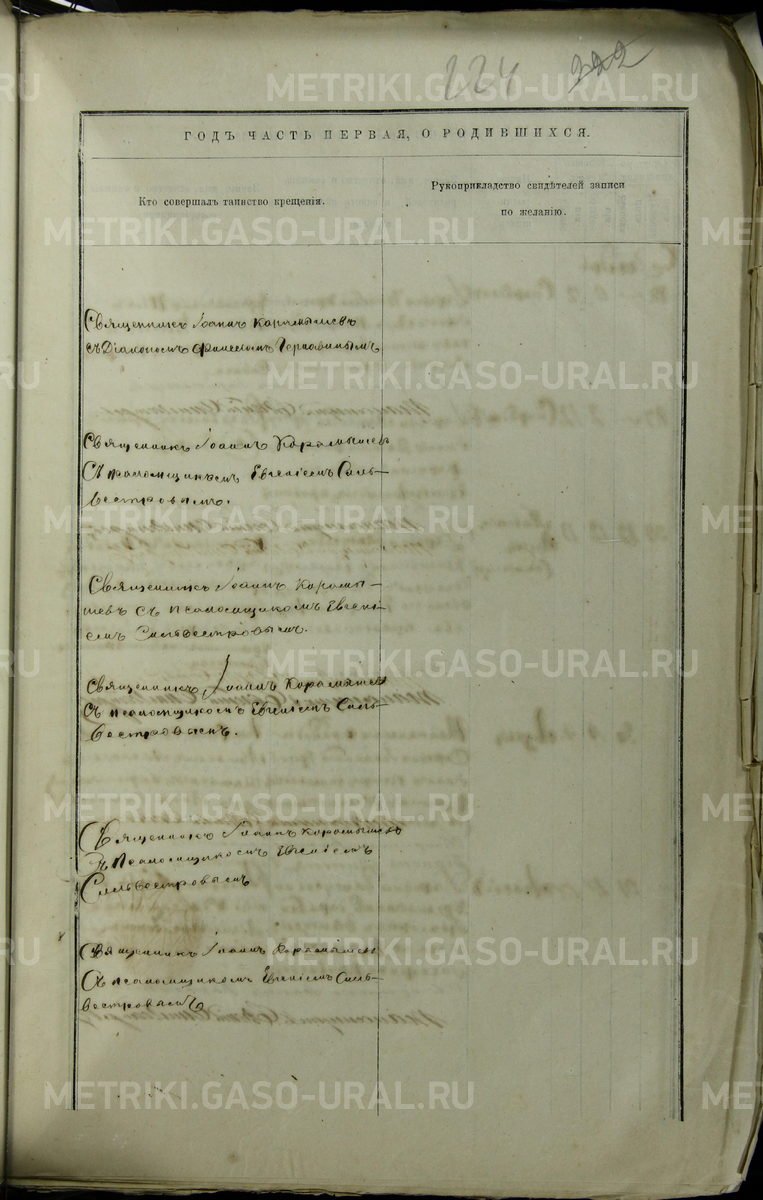 224 222
ГОДЪ ЧАСТЬ ПЕРВАЯ, О РОДИВШИХСЯ.
Кто совершалъ таинство крещенія.
Рукоприкладство свидѣтелей записи
по желанію.
Священникъ Іоаннъ Карамышевъ
съ Діакономъ
Священникъ Іоаннъ Карамышевъ
Съ псаломщикомъ Евгеніемъ Силь-
вестровымъ.
Священникъ Іоаннъ Карамы-
шевъ съ псаломщикомъ Евгені-
емъ Сильвестровымъ.
Священникъ Іоаннъ Карамышевъ
Съ псаломщикомъ Евгеніемъ Силь-
вестровымъ.
Священникъ Іоаннъ Карамышевъ
Съ Псаломщикомъ Евгеніемъ
Сильвестровымъ
Священникъ Іоаннъ Карамышевъ
Съ псаломщикомъ Евгеніемъ Силь-
вестровымъ
METRIKI.GASO-URAL.RU